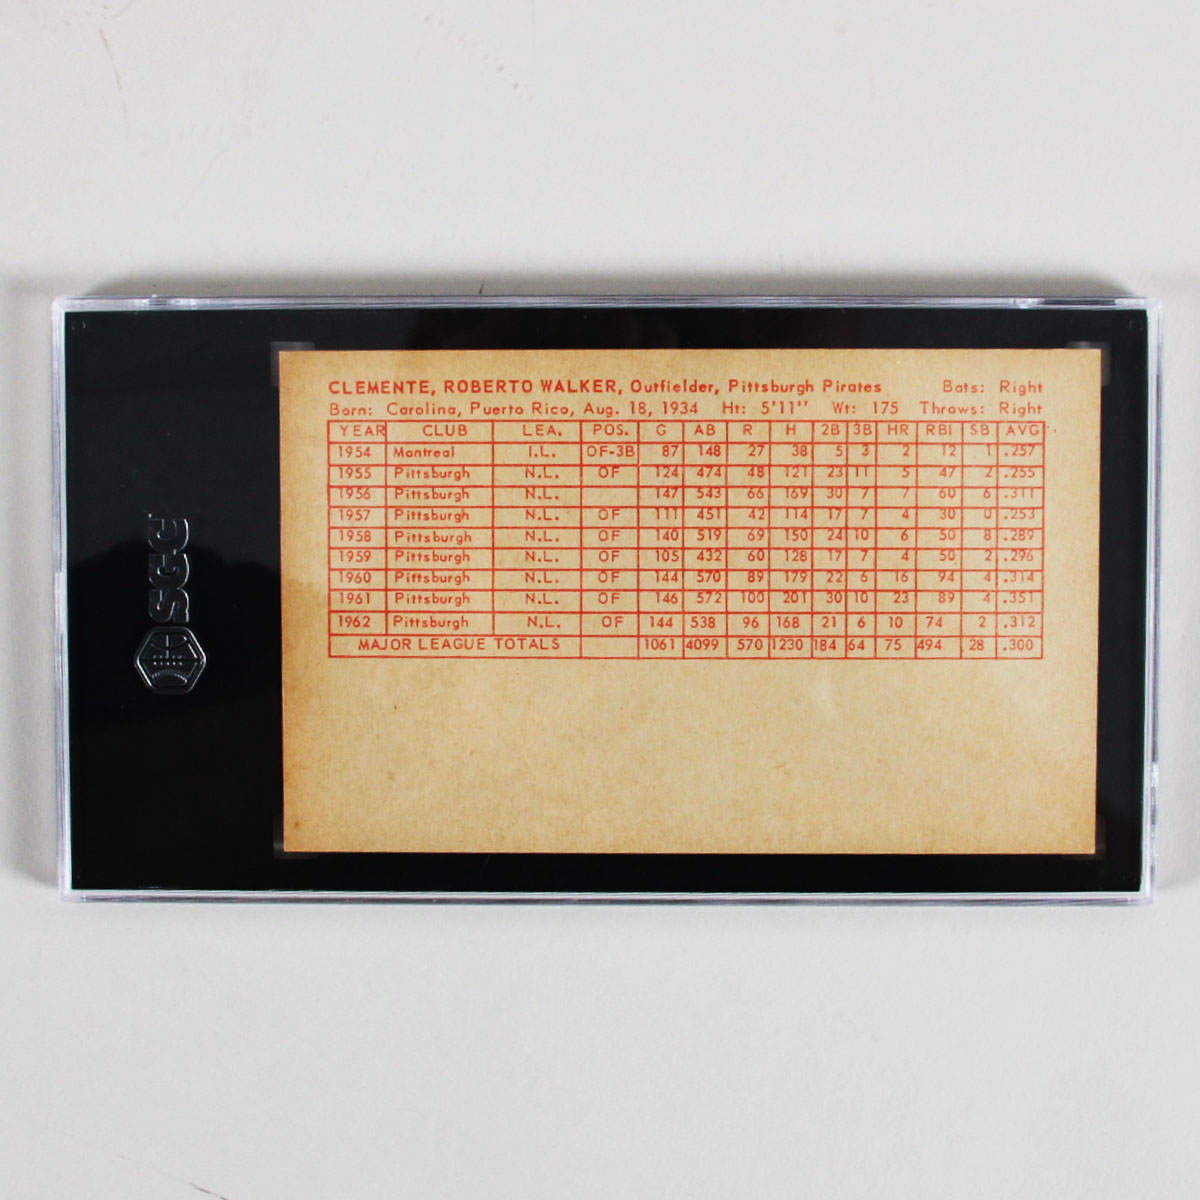 CLEMENTE, ROBERTO WALKER, Outfielder, Pittsburgh Pirates Bats: Right
Born: Carolina, Puerto Rico, Aug. 18, 1934 Ht: 5'11" Wt: 175 Throws: Right
YEAR CLUB LEA. POS. G AB R H 2B 3B HR RBI SB AVG.
1954 Montreal I.L. OF-3B 87 148 27 38 5 3 2 12 1 .257
1955 Pittsburgh N.L. OF 124 474 48 121 23 11 5 47 2 .255
1956 Pittsburgh N.L. 147 543 66 169 30 7 7 60 6 .311
1957 Pittsburgh N.L. OF 111 451 42 114 17 7 4 30 0 .253
1958 Pittsburgh N.L. OF 140 519 69 150 24 10 6 50 8 .289
1959 Pittsburgh N.L. OF 105 432 60 128 17 7 4 50 2 .296
1960 Pittsburgh N.L. OF 144 570 89 179 22 6 16 94 4 .314
1961 Pittsburgh N.L. OF 146 572 100 201 30 10 23 89 4 .351
1962 Pittsburgh N.L. OF 144 538 96 168 21 6 10 74 2 .312
MAJOR LEAGUE TOTALS 1061 4099 570 1230 184 64 75 494 28 .300
SGC